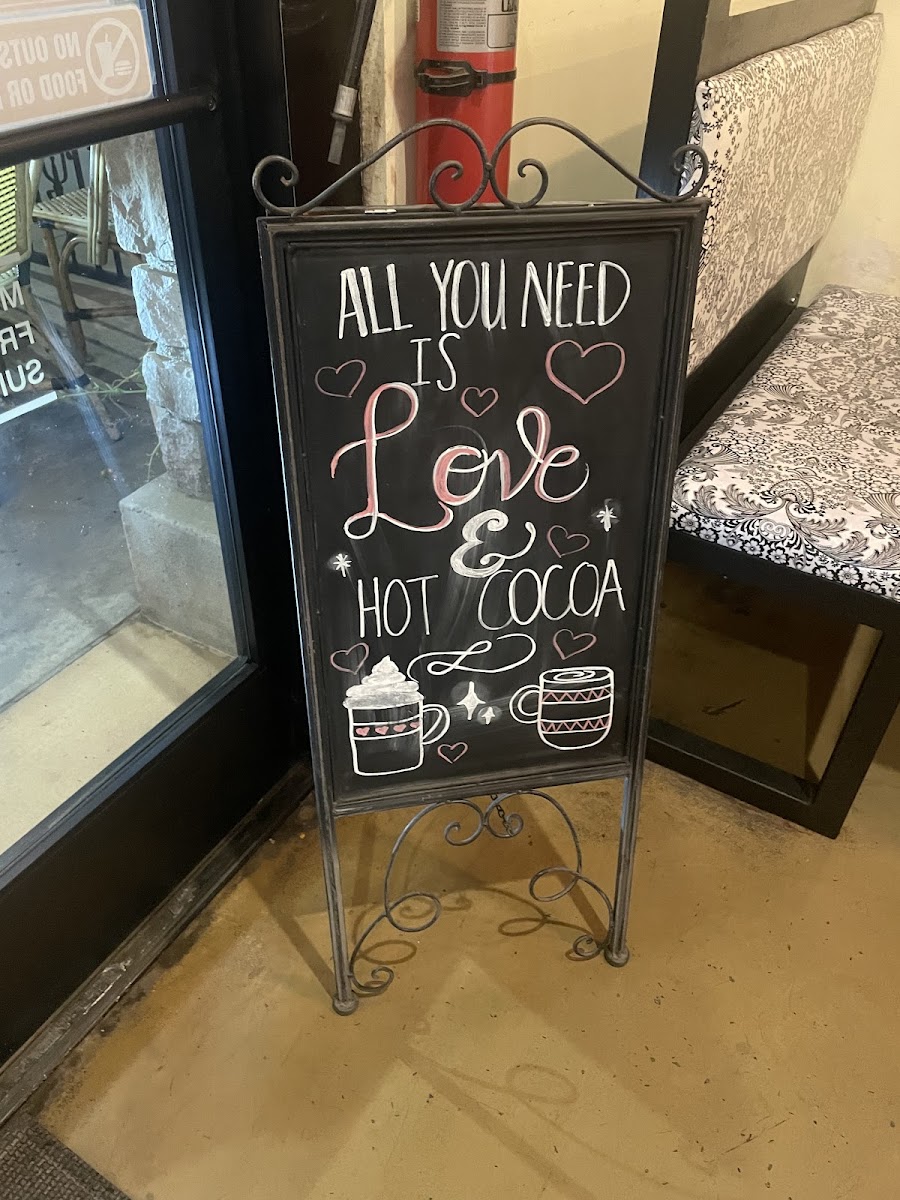 ALL YOU NEED
IS
Love
&
HOT COCOA
NO OUTS
FOOD OR
M
FR
SUN